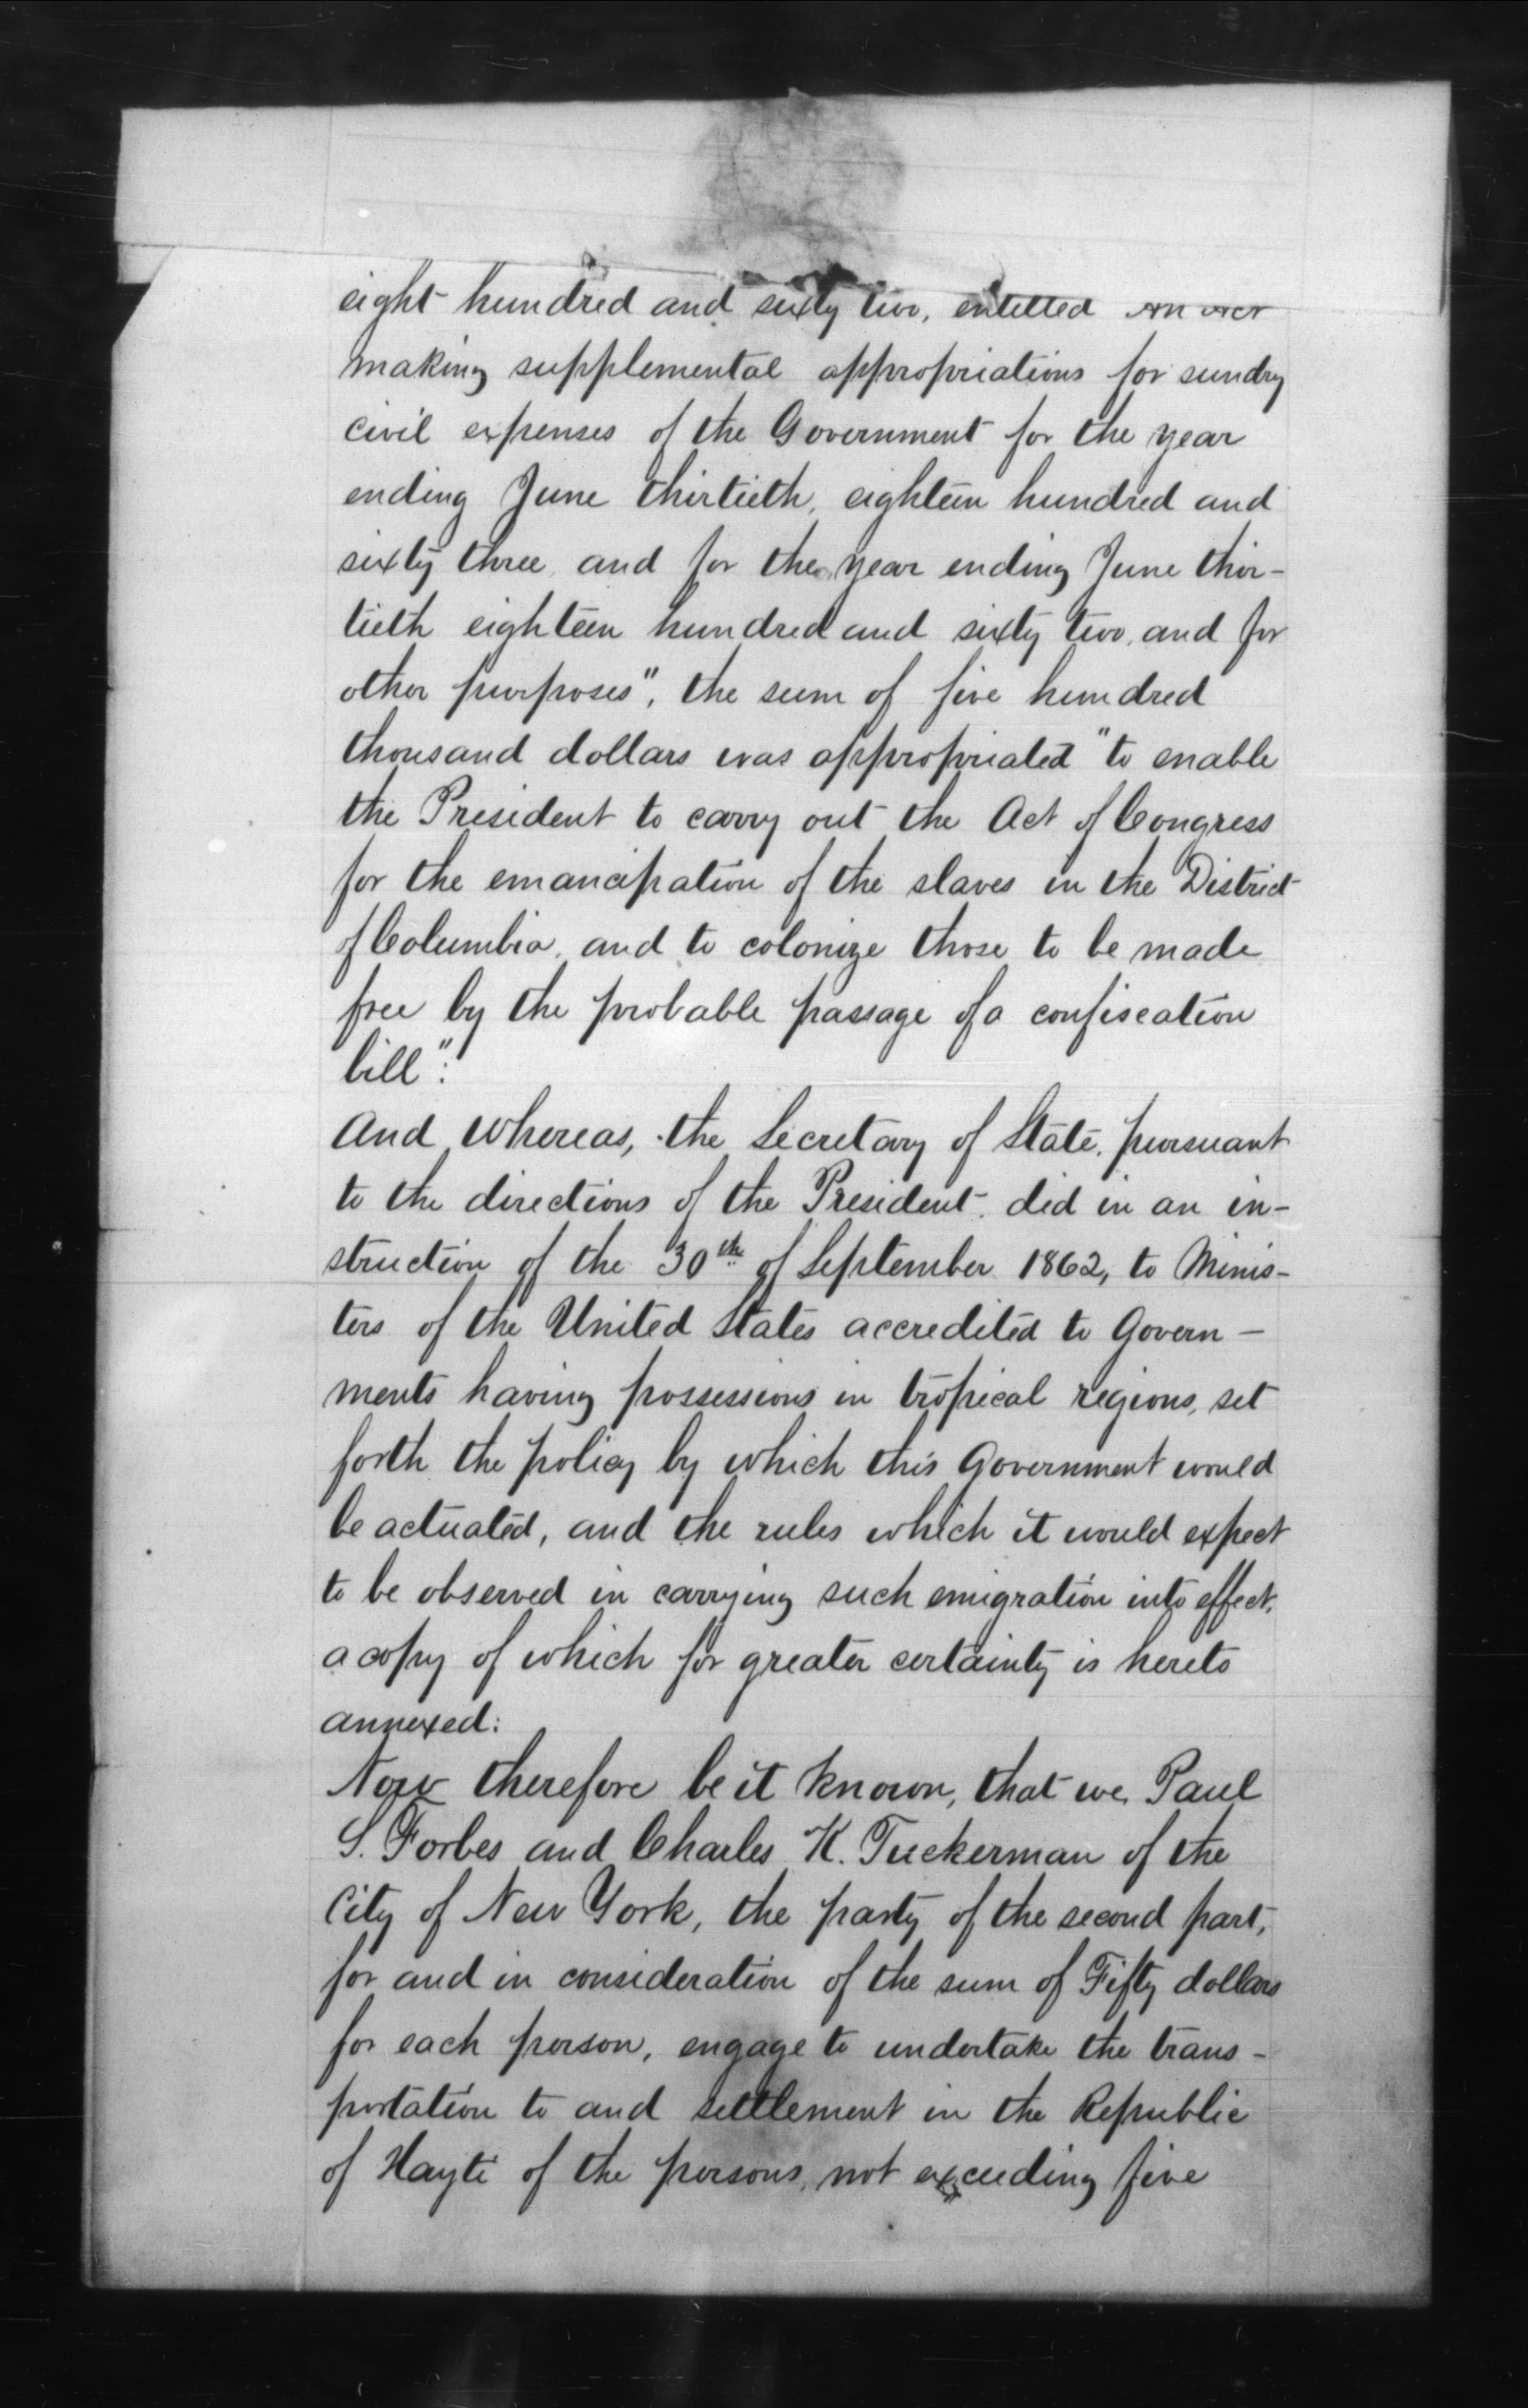 eight hundred and sixty two, entitled An act
making supplemental appropriations for sundry
civil expenses of the Government for the year
ending June thirtieth, eighteen hundred and
sixty three and for the year ending June thir-
tieth eighteen hundred and sixty two, and for
other purposes", the sum of five hundred
thousand dollars was appropriated "to enable
the President to carry out the Act of Congress
for the emancipation of the slaves in the District
of Columbia, and to colonize those to be made
free by the probable passage of a confiscation
bill":
And Whereas, the Secretary of State, pursuant
to the directions of the President, did in an in-
struction of the 30th of September 1862, to Minis-
ters of the United States accredited to Govern-
ments having possessions in tropical regions, set
forth the policy by which this Government would
be actuated, and the rules which it would expect
to be observed in carrying such emigration into effect,
a copy of which for greater certainty is hereto
annexed:
Now therefore be it known, that we, Paul
S. Forbes and Charles K. Tuckerman of the
City of New York, the party of the second part,
for and in consideration of the sum of Fifty dollars
for each person, engage to undertake the trans-
portation to and settlement in the Republic
of Hayti of the persons, not exceeding five